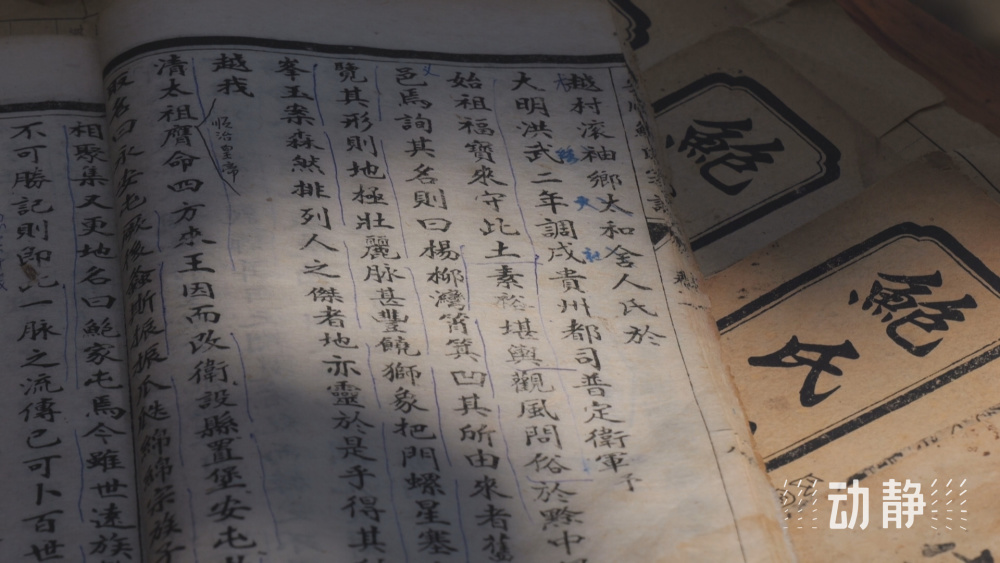 樾村滚袖鄉太和舍人氏於
大明洪武二年調戍貴州都司普定衛軍
始祖福寶來守此土素裕堪輿觀風問俗於黔中
邑焉詢其名則曰楊柳灣筲箕凹其所由來者舊
覽其形則地極壯麗脉甚豐饒獅象把門螺星塞
峯玉案森然排列人之傑者地亦靈於是乎得其
越我
順治皇帝
清太祖膺命四方來王因而改衛設縣置堡安屯
取名曰永安屯厥後螽斯振振瓜瓞綿綿宗族子
相聚集又更地名曰鮑家屯焉今雖世遠族
不可勝記則即此一脉之流傳已可卜百世
鮑
鮑氏
动静